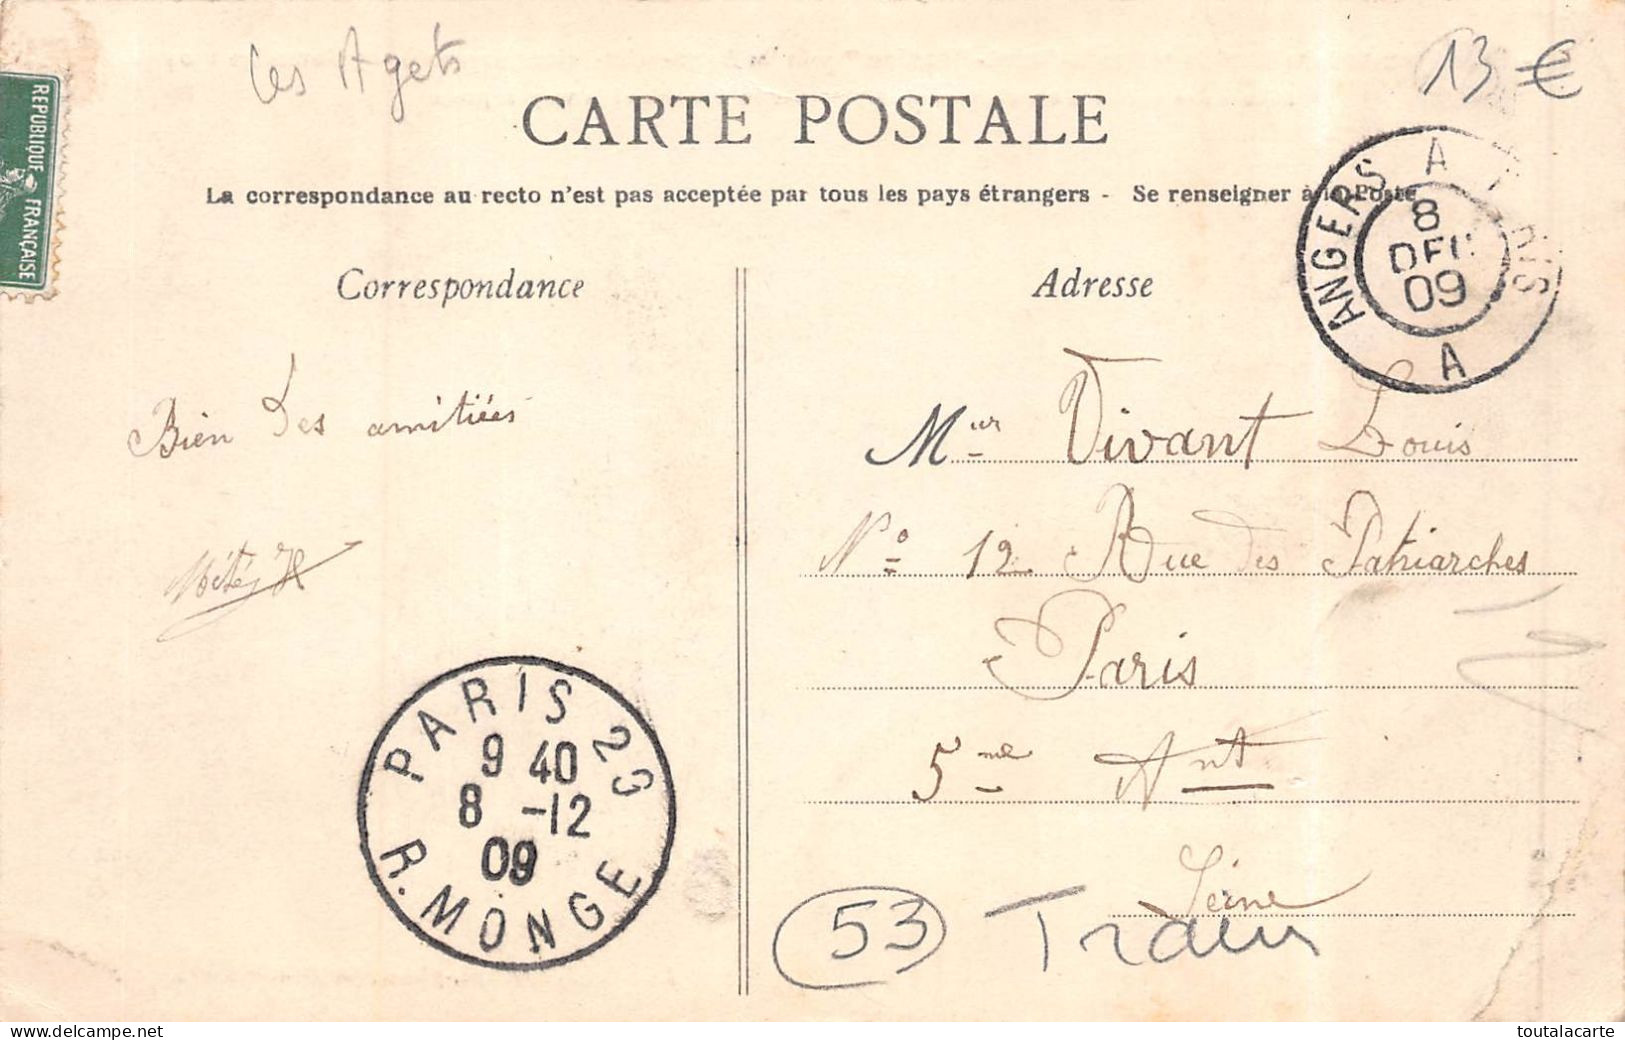 Les Agets
13 €
CARTE POSTALE
La correspondance au recto n'est pas acceptée par tous les pays étrangers - Se renseigner à la Poste
REPUBLIQUE FRANÇAISE
ANGERS A
8
DEC
09
A
Correspondance
Adresse
Bien des amitiées
Mur Vivant Louis
N° 12 Rue des Patriarches
Paris
5me Arnt
Seine
PARIS 29
9 40
8 -12
09
R. MONGE
53 Train
Delcampe.net
toutalacarte